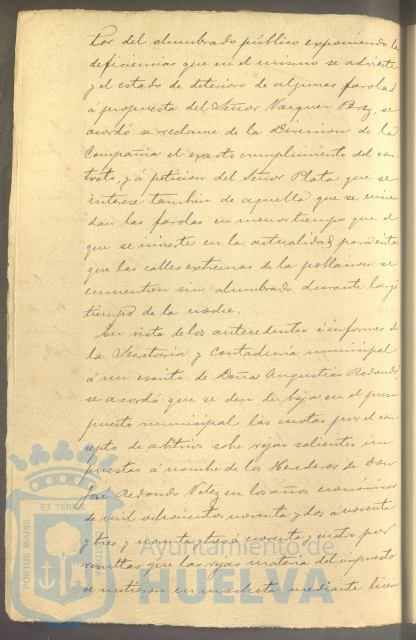 tor del alumbrado público exponiendo la
deficiencias que en el mismo se advierte
y el estado de deterioro de algunas farolas
a propuesta del Señor Vazquez Perez, se
acordó se reclame de la Direccion de la
Compañia el exacto cumplimiento del con
trato, y á peticion del Señor Plata que se
interese tambien de aquella que se encien
dan las farolas en menor tiempo que el
que se invierte en la actualidad para evitar
que las calles extremas de la poblacion se
encuentren sin alumbrado durante largo
tiempo de la noche.
En vista de los antecedentes é informes de
la Secretaria y Contaduria municipal
á un escrito de Doña Angustias Redondo,
se acordó que se den de baja en el presu
puesto municipal las cuotas por el con
cepto de arbitrios sobre rejas salientes im
puestas á nombre de los Herederos de Don
José Redondo Velez en los años económicos
de mil ochocientos noventa y dos á noventa
y tres y noventa y tres á noventa y cuatro por
resultar que las rejas materia del impuesto
se metieron en mocheta mediante licen
PORTUS MARIS ET TERRAE
Ayuntamiento de
HUELVA